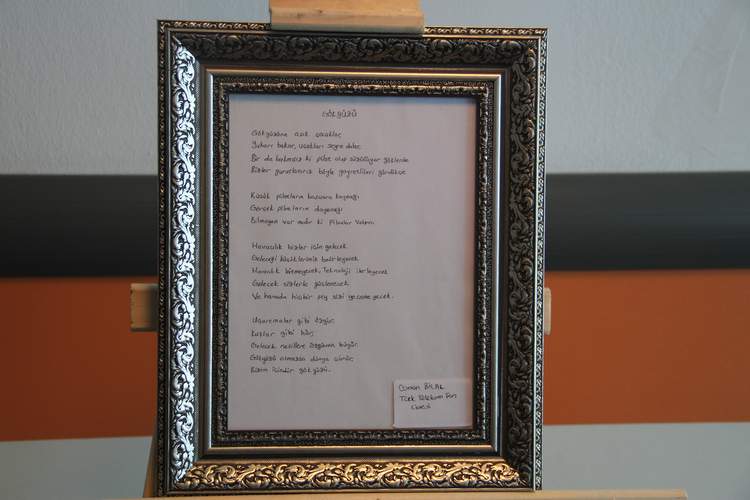 GÖKYÜZÜ
Gökyüzüne aşık çocuklar,
Yukarı bakar, uçakları seyre dalar.
Bir de bakmışız ki pilot olup süzülüyor göklerde
Bizler gururlanırız böyle gayretlileri gördükçe
Küçük pilotların başucu kaynağı
Gerçek pilotların dayanağı
Bilmeyen var mıdır ki Pilotlar Vakfını
Havacılık bizler için gelecek
Geleceği küçüklerimiz belirleyecek
Havacılık bitmeyecek, Teknoloji ilerleyecek
Gelecek sizlerle güçlenecek
Ve havada hiçbir şey sizi geçemeyecek.
Uçurtmalar gibi özgür,
Kuşlar gibi hür,
Gelecek nesillere özgürce büyür.
Gökyüzü olmazsa dünya çürür,
Bizim içindir gökyüzü.
Osman BİLAL
Türk Telekom Fen
Lisesi